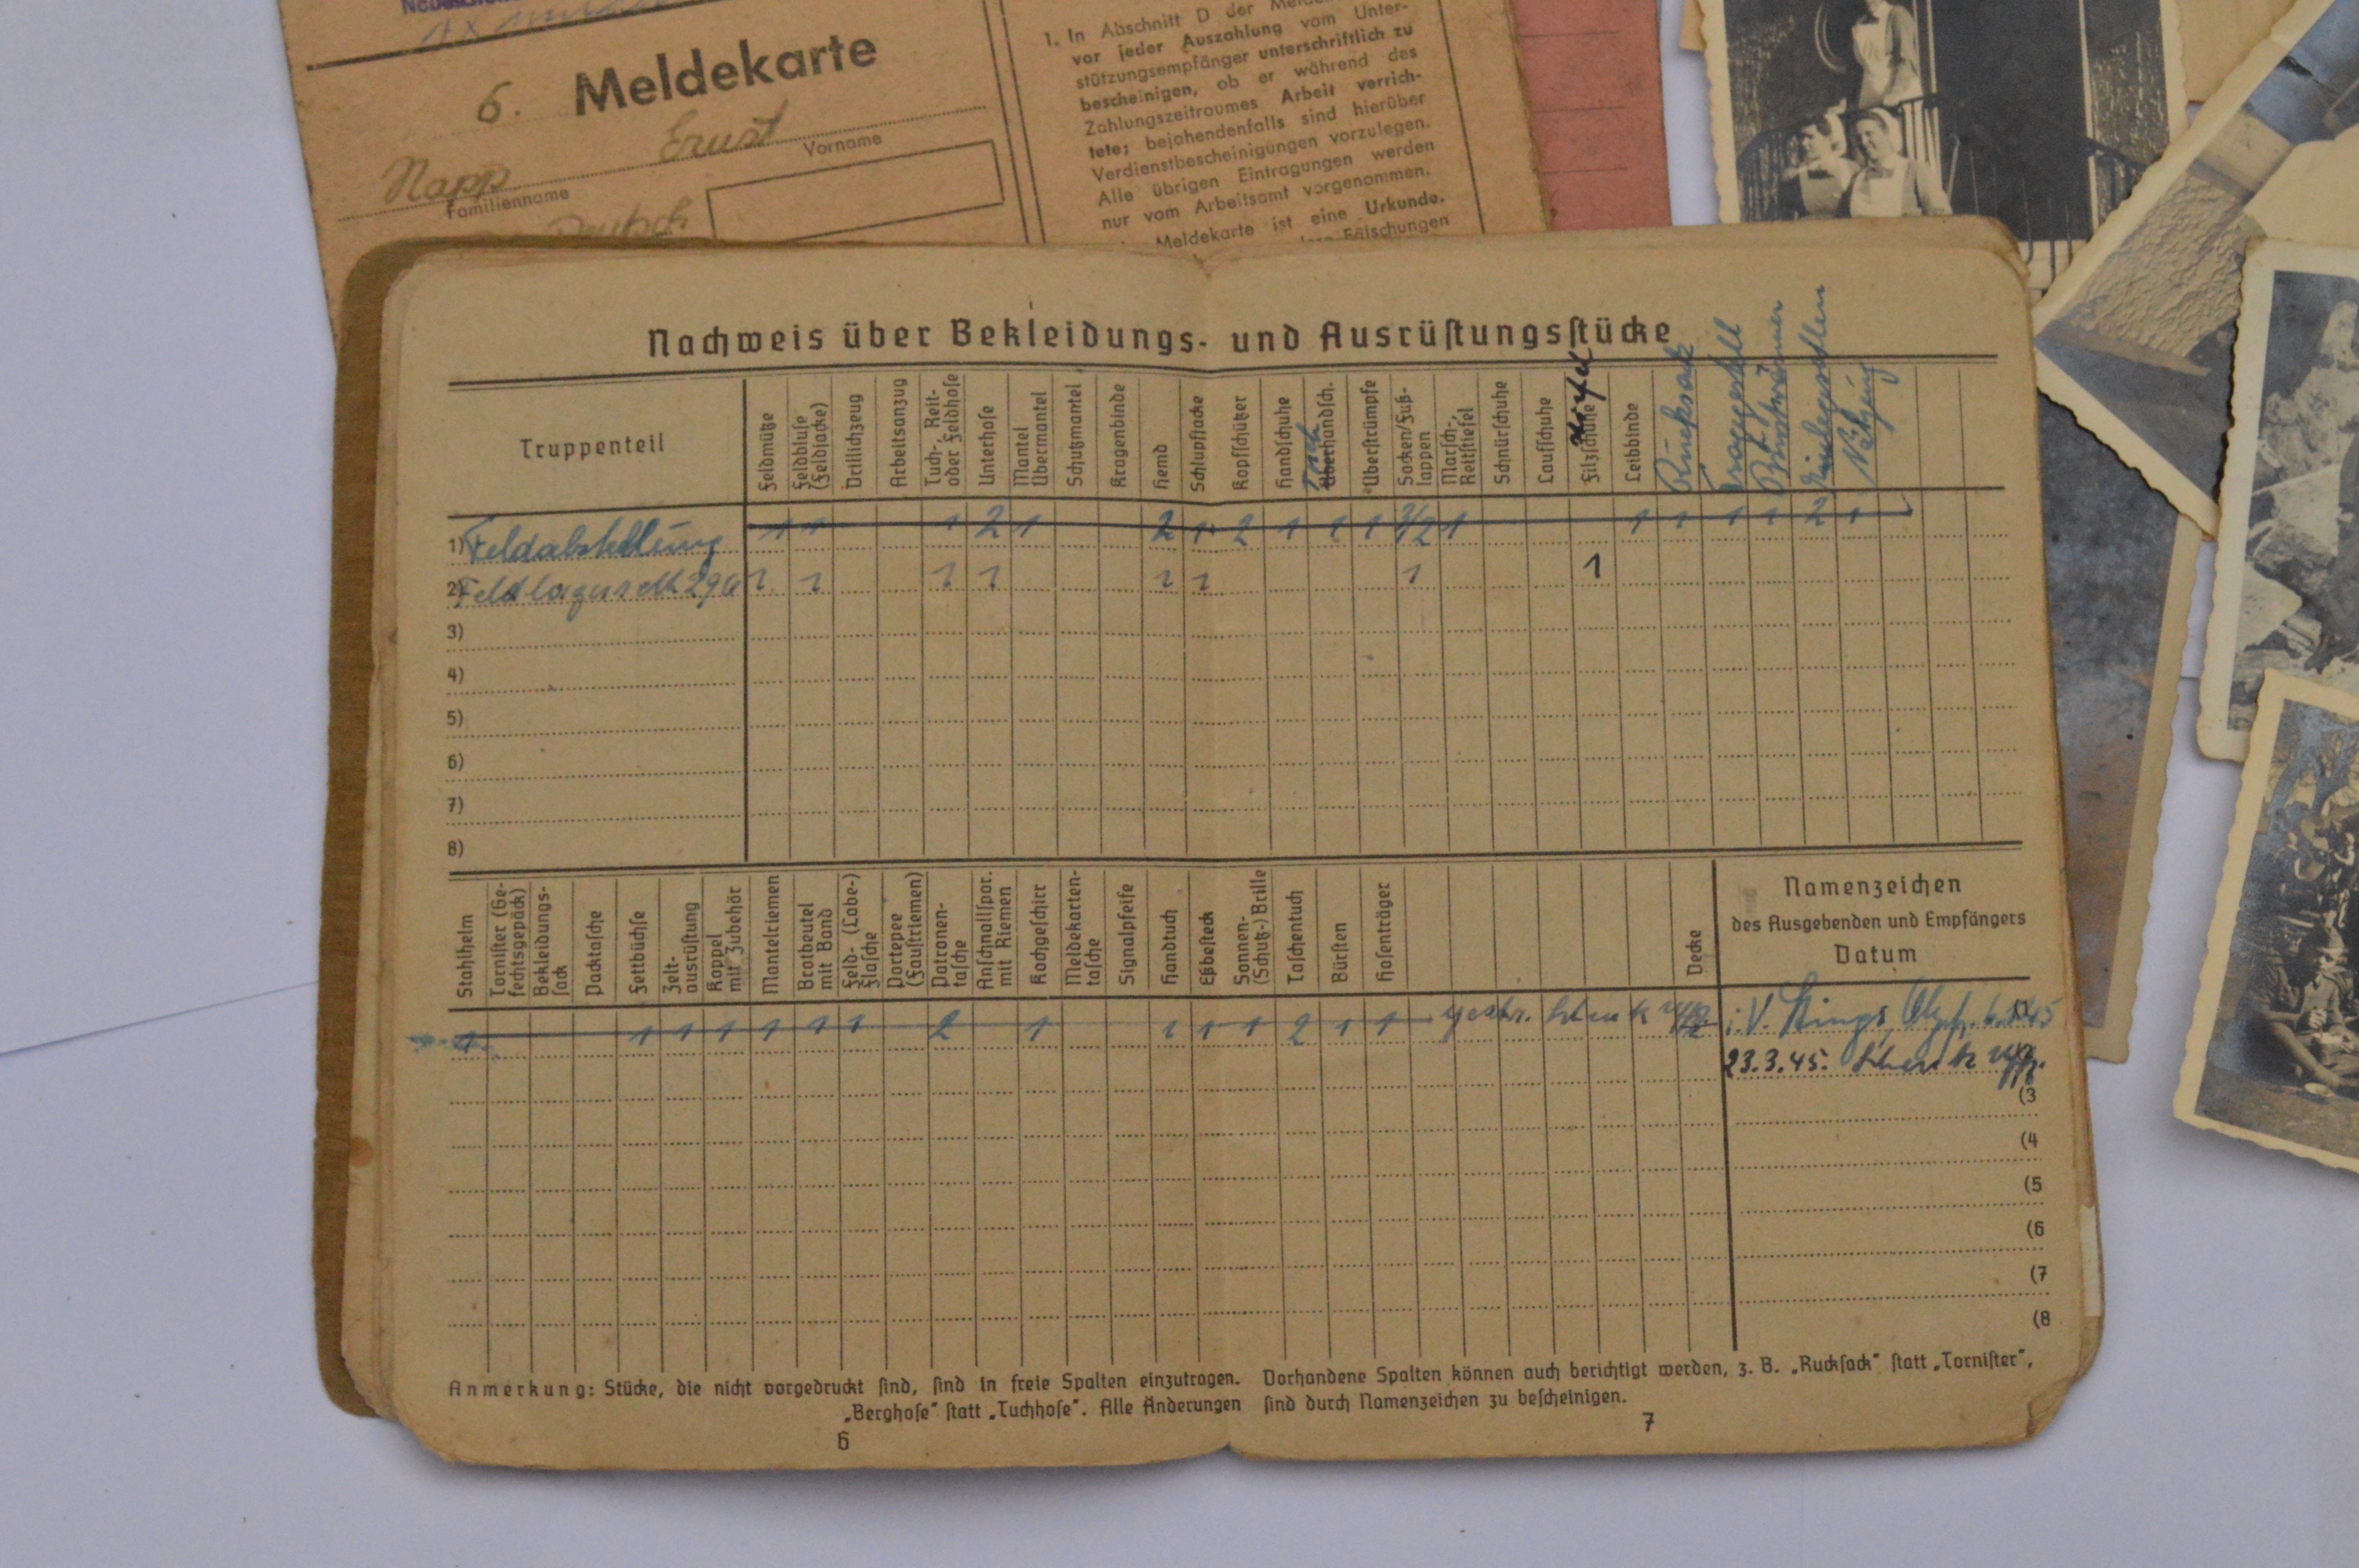 6. Meldekarte
Ernst
Vorname
Napp
Familienname
Deutsch
1. In Abschnitt D der
vor jeder Auszahlung vom Unter-
stützungsempfänger unterschriftlich zu
bescheinigen, ob er während des
Zahlungszeitraumes Arbeit verrich-
tete; bejahendenfalls sind hierüber
Verdienstbescheinigungen vorzulegen.
Alle übrigen Eintragungen werden
nur vom Arbeitsamt vorgenommen.
Meldekarte ist eine Urkunde.
Fälschungen
Nachweis über Bekleidungs- und Ausrüstungsstücke
Truppenteil
Feldmütze
Feldbluse
(Feldjacke)
Drillichzeug
Arbeitsanzug
Tuch-, Reit-
oder Feldhose
Unterhose
Mantel
Übermantel
Schutzmantel
Kragenbinde
Hemd
Schlupfjacke
Kopfschützer
Handschuhe
Überhandsch.
Überstrümpfe
Socken/Fuß-
lappen
Marsch-,
Reitstiefel
Schnürschuhe
Laufschuhe
Filzschuhe
Leibbinde
Rucksack
Traggestell
Einlegesohlen
Nähzeug
1) Feldabstellung 1 1 1 2 1 2 1 2 1 1 1 2/2 1 1 1 1 1 2 1
2) 1 1 1 1 1 1 1 1
3)
4)
5)
6)
7)
8)
Stahlhelm
Tornister (Ge-
fechtsgepäck)
Bekleidungs-
sack
Packtasche
Fettbüchse
Zelt-
ausrüstung
Koppel
mit Zubehör
Mantelriemen
Brotbeutel
mit Band
Feld- (Labe-)
flasche
Portepee
(Faustriemen)
Patronen-
tasche
Anschnallspor.
mit Riemen
Kochgeschirr
Meldekarten-
tasche
Signalpfeife
Handtuch
Eßbesteck
Sonnen-
(Schutz-) Brille
Taschentuch
Bürsten
Hosenträger
Decke
Namenzeichen
des Ausgebenden und Empfängers
Datum
1 1 1 1 1 1 1 2 1 1 1 1 2 1 1 gestr. i. V.
23.3.45.
(3
(4
(5
(6
(7
(8
Anmerkung: Stücke, die nicht vorgedruckt sind, sind in freie Spalten einzutragen. Vorhandene Spalten können auch berichtigt werden, z. B. „Rucksack" statt „Tornister",
„Berghose" statt „Tuchhose". Alle Änderungen sind durch Namenzeichen zu bescheinigen.
6
7